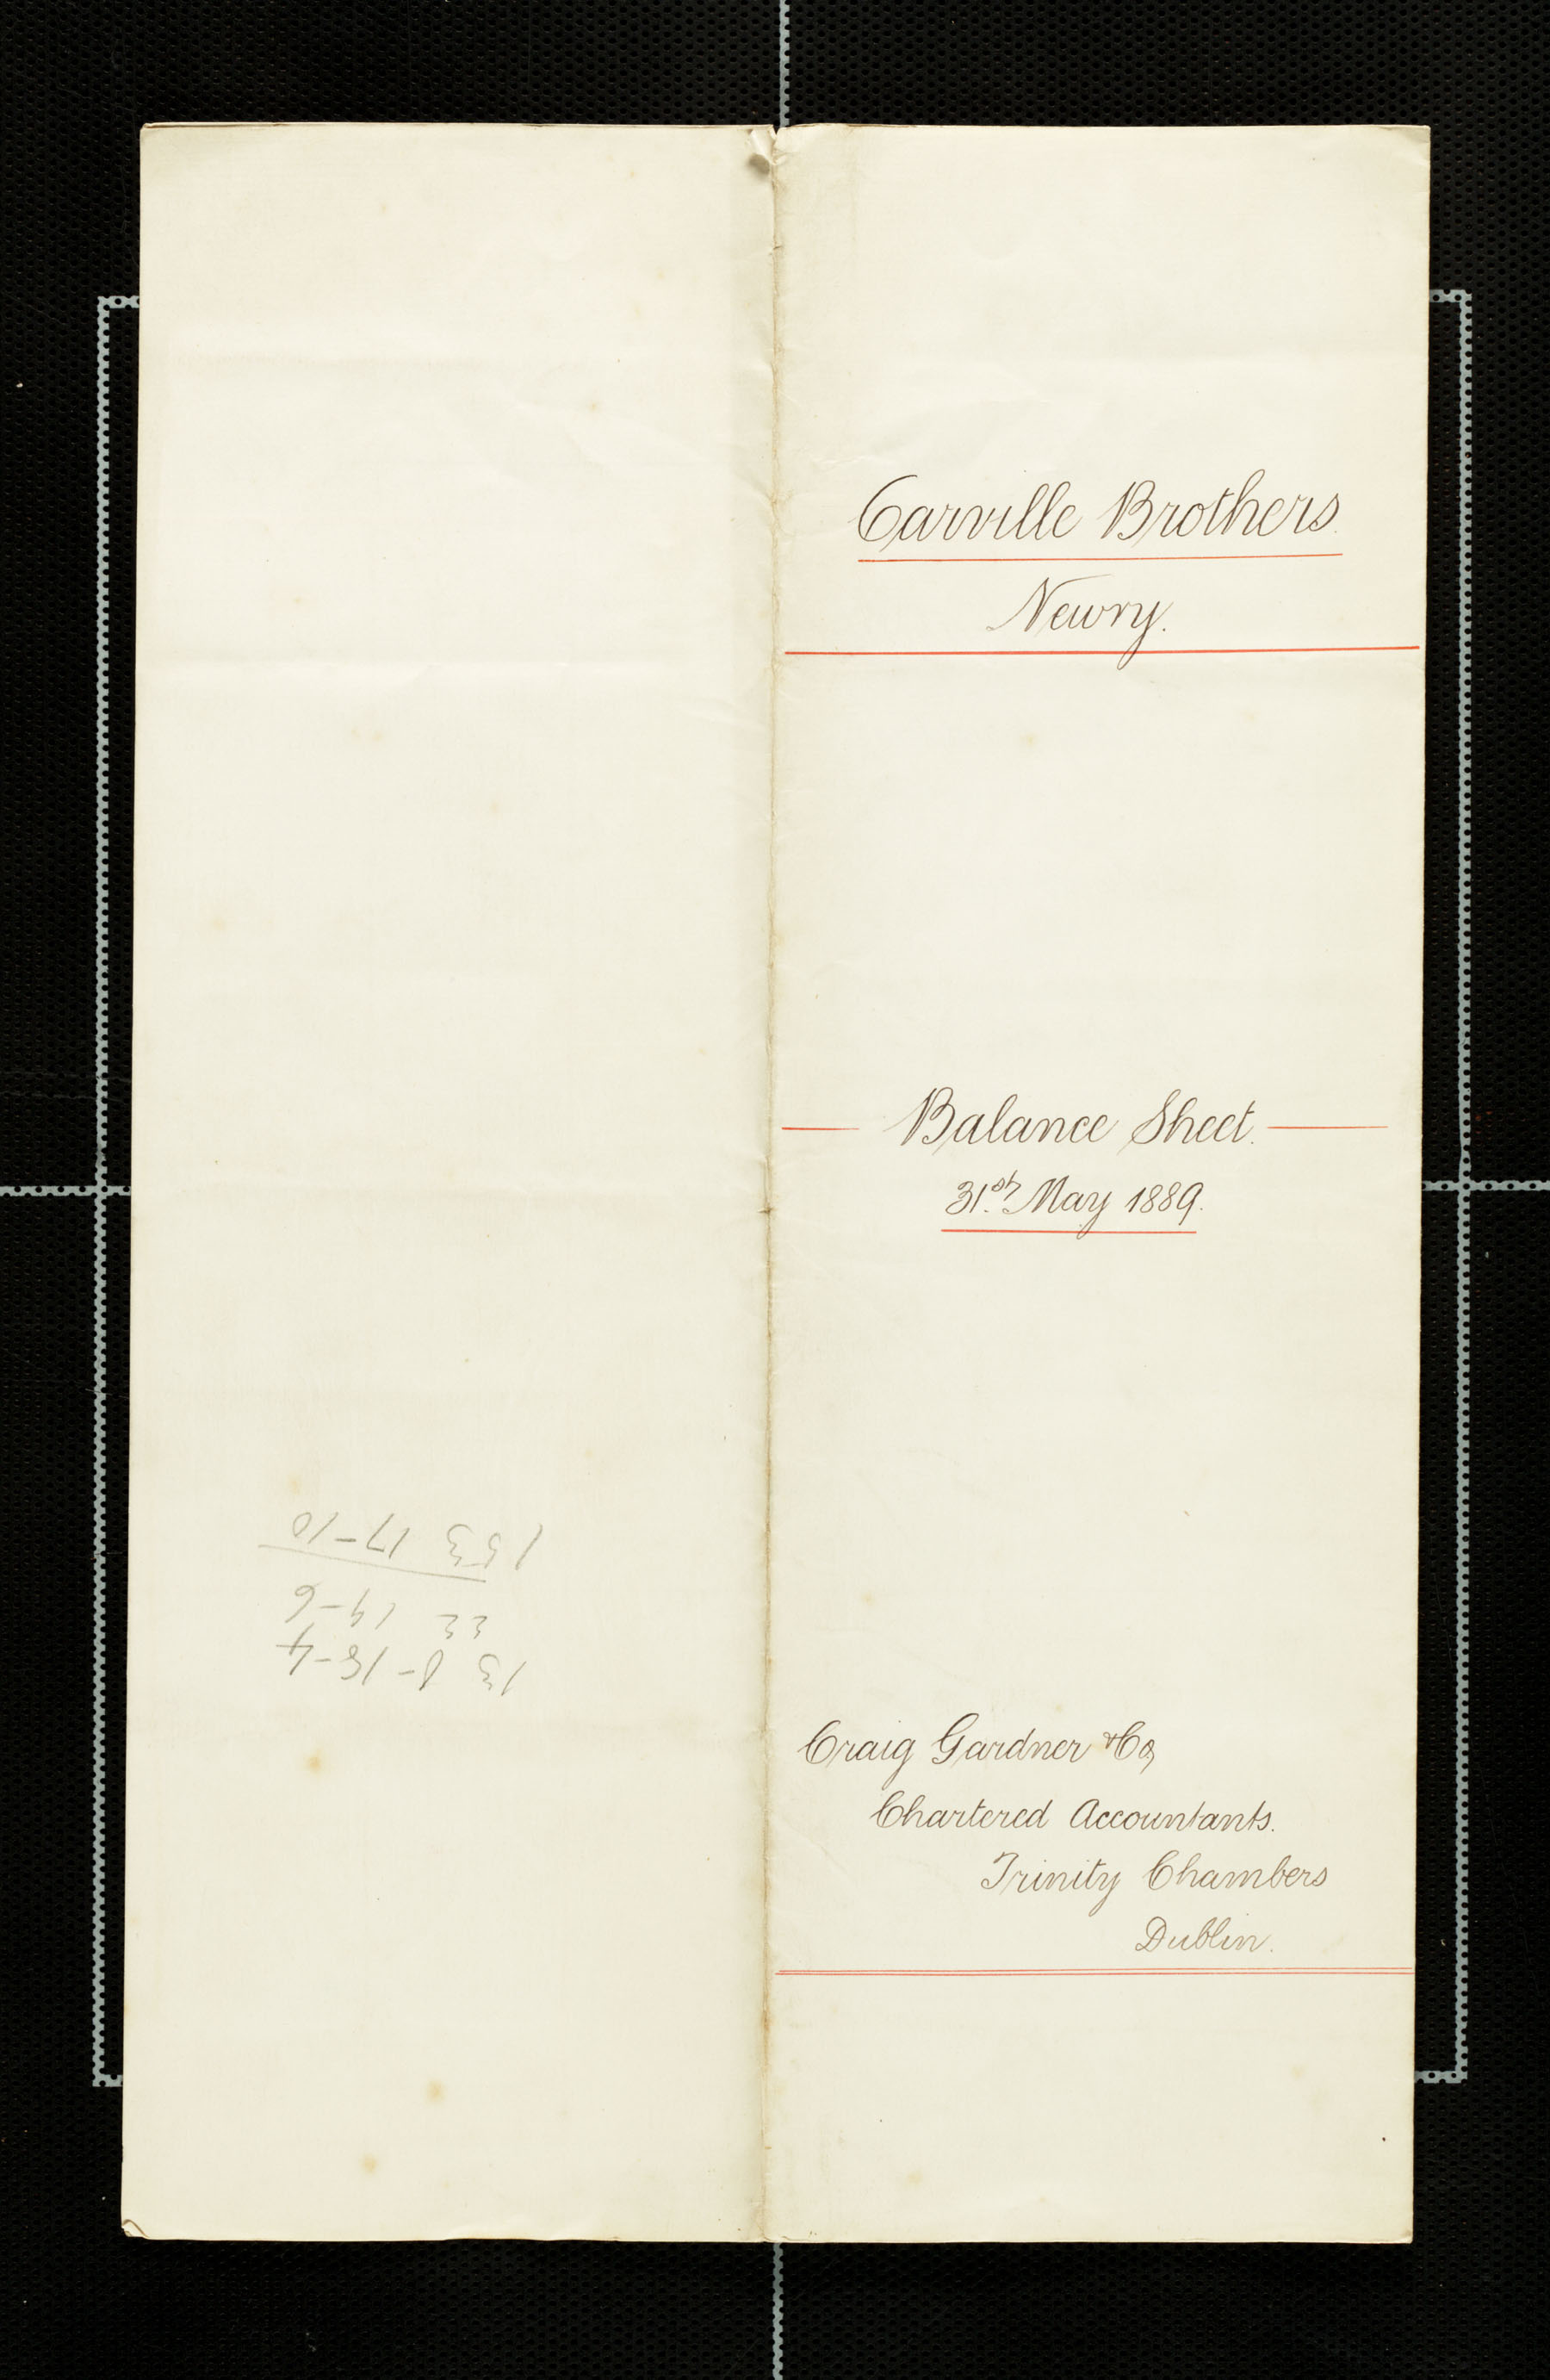 Carville Brothers.
Newry.
Balance Sheet.
31st. May 1889.
Craig Gardner & Co,
Chartered Accountants.
Trinity Chambers
Dublin.
130-18-4
22 19-6
153 17-10